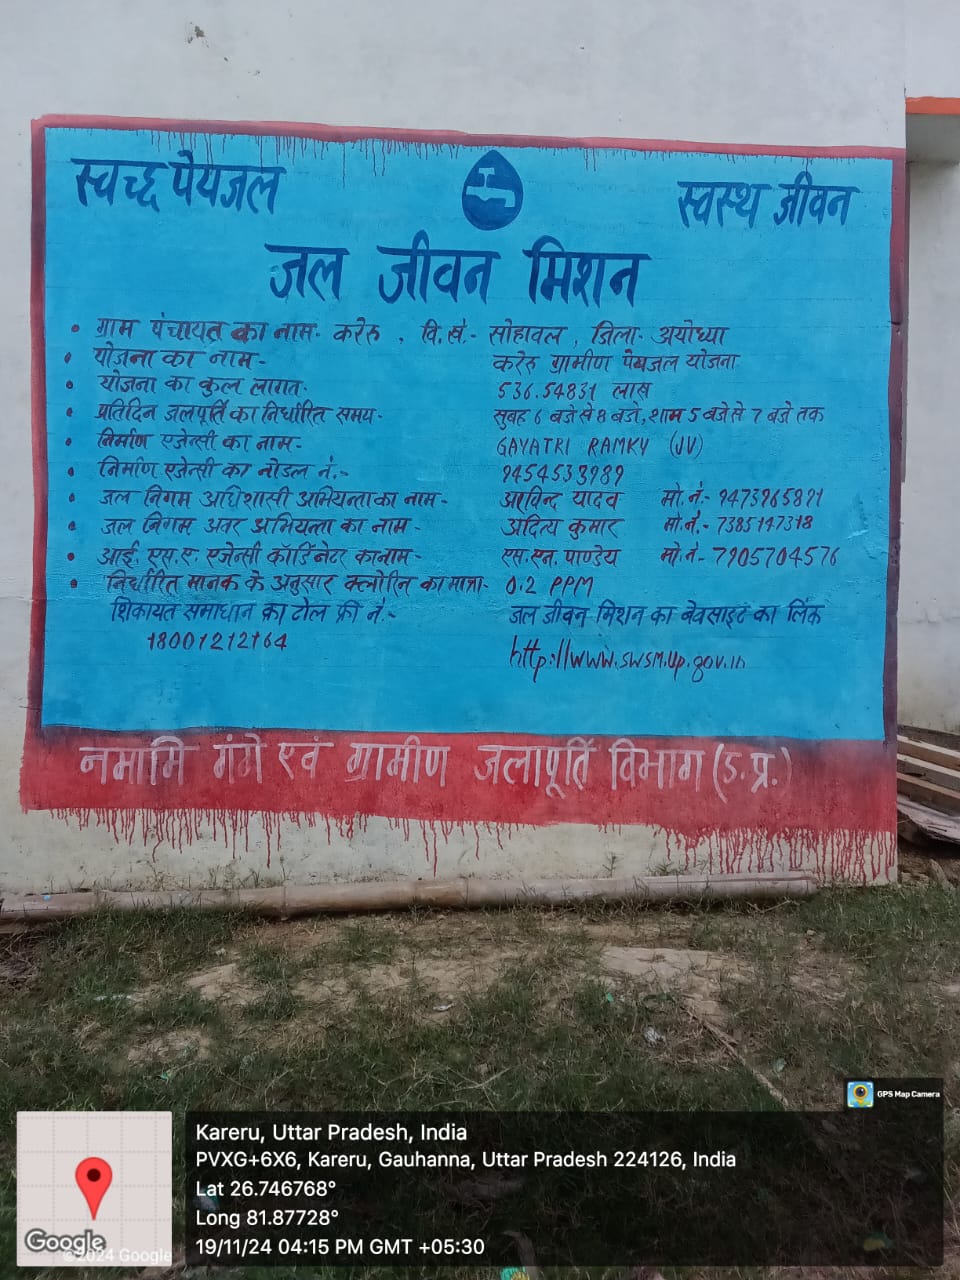 स्वच्छ पेयजल
स्वस्थ जीवन
जल जीवन मिशन
• ग्राम पंचायत का नाम- करेरु , वि.खं.- सोहावल , जिला- अयोध्या
• योजना का नाम- करेरु ग्रामीण पेयजल योजना
• योजना का कुल लागत- 536.54831 लाख
• प्रतिदिन जलपूर्ति का निर्धारित समय- सुबह 6 बजे से 8 बजे, शाम 5 बजे से 7 बजे तक
• निर्माण एजेन्सी का नाम- GAYATRI RAMKY (JV)
• निर्माण एजेन्सी का नोडल नं.- 9454533989
• जल निगम अधिशासी अभियन्ता का नाम- अरविन्द यादव मो.नं.- 9473965891
• जल निगम अवर अभियन्ता का नाम- अदित्य कुमार मो.नं.- 7385147318
• आई. एस.ए. एजेन्सी कॉर्डिनेटर का नाम- एस.एन. पाण्डेय मो.नं- 7905704576
• निर्धारित मानक के अनुसार क्लोरिन का मात्रा- 0.2 PPM
शिकायत समाधान का टोल फ्री नं.- जल जीवन मिशन का वेवसाइट का लिंक
18001212164 http://www.swsm.up.gov.in
नमामि गंगे एवं ग्रामीण जलापूर्ति विभाग (उ.प्र.)
GPS Map Camera
Kareru, Uttar Pradesh, India
PVXG+6X6, Kareru, Gauhanna, Uttar Pradesh 224126, India
Lat 26.746768°
Long 81.87728°
19/11/24 04:15 PM GMT +05:30
Google
©2024 Google